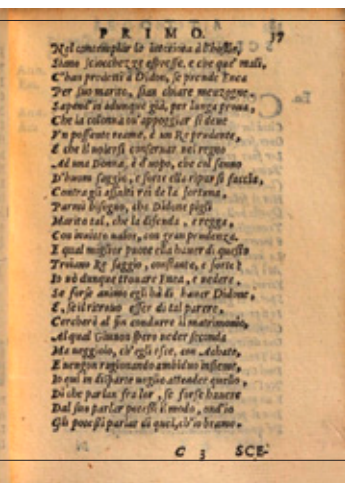 PRIMO. 37
Nel contemplar le interiora à l'hostie,
Siano sciocchezze espresse, e che que' mali,
C'han predetti à Didon, se prende Enea
Per suo marito, sian chiare menzogne.
Sapend'io adunque già, per lunga proua,
Che la colonna ou'appoggiar si deue
Vn possente reame, è un Re prudente,
E che il uolersi conseruar nel regno
Ad una Donna, è d'uopo, che col senno
D'huom saggio, e forte ella ripar si faccia,
Contra gli assalti rei de la fortuna,
Parmi bisogno, che Didone pigli
Marito tal, che la difenda, e regga,
Con inuitto ualor, con gran prudenza.
E qual miglior puote ella hauer di questo
Troiano Re saggio, constante, e forte?
Io uò dunque trouare Enea, e uedere,
Se forse animo egli hà di hauer Didone,
E, se il ritrouo esser di tal parere,
Cercherò al fin condurre il matrimonio,
Al qual Giunon spero ueder seconda
Ma ueggioio, ch'egli esce, con Achate,
E uengon ragionando ambiduo insieme,
Io qui in disparte uoglio attender quello,
Di che parlan fra lor, se forse hauere
Dal suo parlar potessi il modo, ond'io
Gli potessi parlar di quel, ch'io bramo.
C 3 SCE-